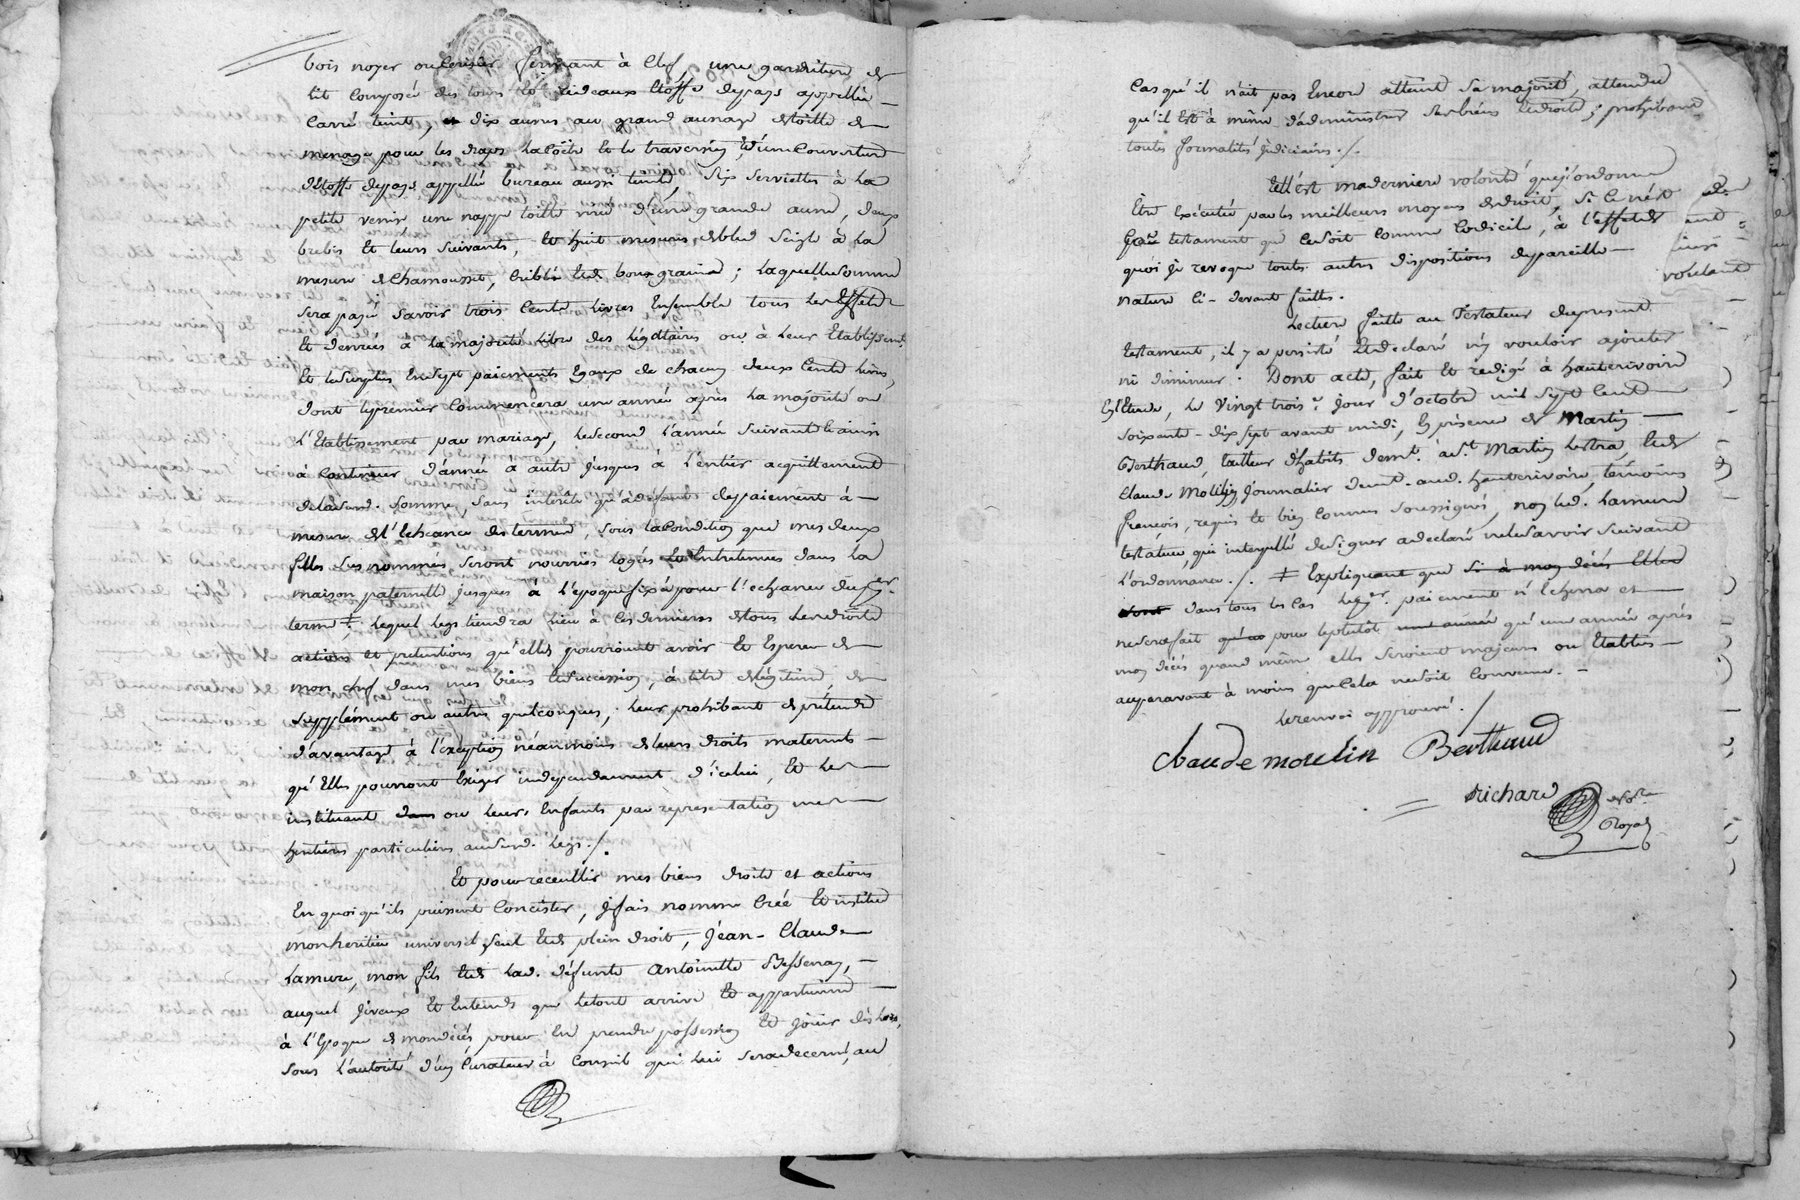 bois noyer ou cerisier fermant à clef, une garniture de
lit composée des tours de rideaux étoffe du pays appellée
carré teint, dix aunes au grand aunage de toille de
menage pour les draps la coëte et le traversin, d'une couverture
d'étoffe du pays appellée bureau aussi teinte, six serviettes à la
petite venise une nappe toille miée d'une grande aune, deux
brebis et leurs suivants, et huit mesures de bled seigle à la
mesure de Chamousset, criblé et de bon grain; laquelle somme
sera payée savoir trois cents livres ensemble tous les effets
et denrées à la majorité libre des légataires ou à leur établissemt.
et le surplus en sept paiements égaux de chacun deux cents livres,
dont le premier commencera une année après la majorité ou
l'établissement par mariage, le second l'année suivante et ainsi
à continuer d'année a autre jusques à l'entier acquittement
de la susd. somme, sans interêts qu'à défaut de paiement à
mesure de l'échéance des termes, sous la condition que mes deux
filles sus nommées seront nourries logées et entretenues dans la
maison paternelle jusques à l'époque fixée pour l'echeance du 1er.
terme ‡, lequel legs tiendra lieu à ces dernieres de tous les droits
actions et pretentions qu'elles pourroient avoir et esperer de
mon chef dans mes biens et succession, à titre de légitime, de
supplément ou autres quelconques, leur prohibant de prétendre
d'avantage à l'exception néanmoins de leurs droits maternels
qu'elles pourront exiger independament d'icelui, et les
instituant dans ou leurs enfants par representation mes
heritiers particuliers au susd. legs./.
Et pour receuillir mes biens droits et actions
en quoi qu'ils puissent concister, je fais nomme créé et institue
mon heritier universel, seul et de plein droit, Jean-Claude
Lamure, mon fils et de lad. défunte Antoinette Bessenay,
auquel je veux et entends que le tout arrive et appartienne
à l'époque de mon décès, pour en prendre possession et jouir dès lors,
sous l'autorité d'un curateur à conseil qui lui sera decerné, au
cas qu'il n'ait pas encore atteint sa majorité, attendu
qu'il est à même d'administrer ses biens et droits; prohibant
toutes formalités judiciaires./.
Telle est ma derniere volonté que j'ordonne
être exécutée par les meilleurs moyens de droit, si ce n'est
par testament que ce soit comme codicile, à l'effet de
quoi je revoque toutes autres dispositions de pareille
nature ci-devant faittes.
Lecture faitte au testateur du present
testament, il y a persisté et declaré n'y vouloir ajouter
ni diminuer. Dont acte, fait et redigé à hauterivoire
en l'Etude, le vingt trois.e jour d'octobre mil sept cent
soixante-dix sept avant midi, en présence de Martin
Berthaud, tailleur d'habits demt. à St. Martin Lestra, et de
Claude Moulin journalier demt. aud. hauterivoire, temoins
françois, requis et bien connus soussignés, non led. Lamure
testateur, qui interpellé de signer a declaré ne le savoir suivant
l'ordonnance./. ‡ Expliquant que si à mon décès elles
sont dans tous les cas le 1er. paiement n'échera et
ne sera fait qu'au pour le plutôt une année qu'une année après
mon décès quand même elles seroient majeures ou établies
auparavant à moins que cela ne soit convenu.
Le renvoi approuvé./
Claude moulin Berthaud
Richard
Nore.
Royal